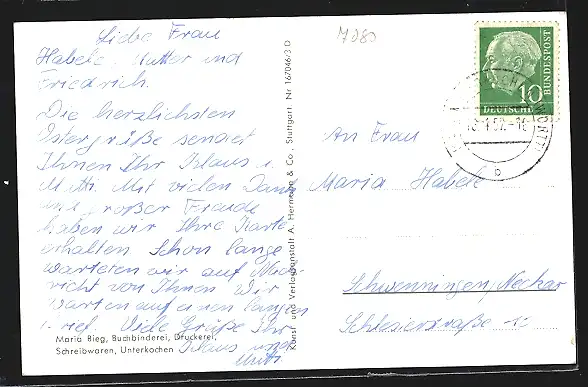 7080
Liebe Frau
Habele. Mutter und
Friedrich.
Die herzlichsten
Ostergrüße sendet
Ihnen Ihr Klaus u.
Mutti. Mit vielen Dank
und großer Freude
haben wir Ihre Karte
erhalten. Schon lange
warteten wir auf Nach-
richt von Ihnen. Wir
warten auf einen langen
Brief. Viele Grüße Ihr
Klaus und
Mutti.
Maria Bieg, Buchbinderei, Druckerei,
Schreibwaren, Unterkochen
Kunst- und Verlagsanstalt A. Hermann & Co., Stuttgart Nr 167046/3 D
10
DEUTSCHE
BUNDESPOST
An Frau
Maria Habele
Schwenningen/Neckar
Schlesierstraße